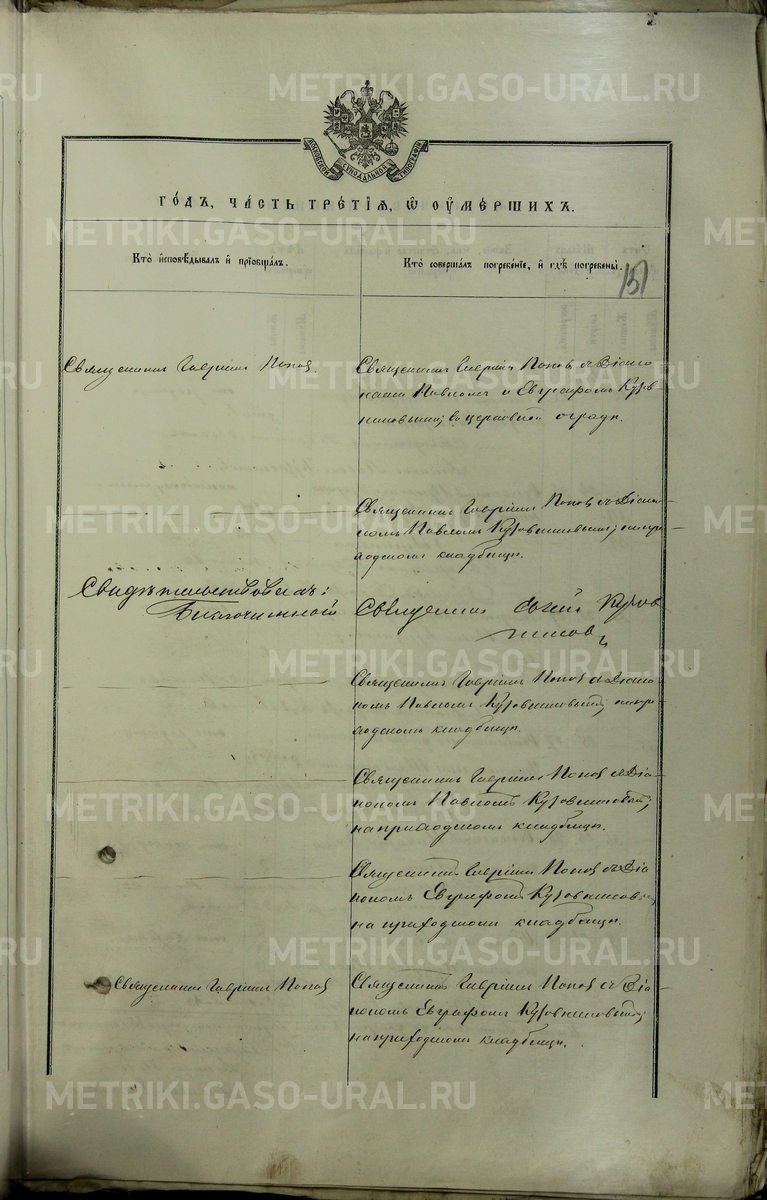 METRIKI.GASO-URAL.RU
МОСКОВСКОЙ СѴНОДАЛЬНОЙ ТИПОГРАФІИ
ГО́ДЪ, ЧА́СТЬ ТРЕ́ТІЯ, Ѡ ОУМЕ́РШИХЪ.
Кто̀ и҆сповѣ́дывалъ и҆ прїѡбща́лъ.
Кто̀ соверша́лъ погребе́нїе, и҆ гдѣ̀ погребены̀.
151
Священникъ Гавріилъ Поповъ.
Священникъ Гавріилъ Поповъ съ Діако
нами Павломъ и Евграфомъ Кузов
никовыми; въ церковной оградѣ.
Священникъ Гавріилъ Поповъ съ Діако-
номъ Павломъ Кузовниковымъ; на при-
ходскомъ кладбищѣ.
Свидѣтельствовалъ:
Благочинной Священникъ Кузов
никовъ
Священникъ Гавріилъ Поповъ съ Діако
номъ Павломъ Кузовниковымъ; на при
ходскомъ кладбищѣ.
Священникъ Гавріилъ Поповъ съ Діа-
кономъ Павломъ Кузовниковымъ;
на приходскомъ кладбищѣ.
Священникъ Гавріилъ Поповъ съ Діа
кономъ Евграфомъ Кузовниковымъ;
на приходскомъ кладбищѣ.
Священникъ Гавріилъ Поповъ
Священникъ Гавріилъ Поповъ съ Діа-
кономъ Евграфомъ Кузовниковымъ;
на приходскомъ кладбищѣ.